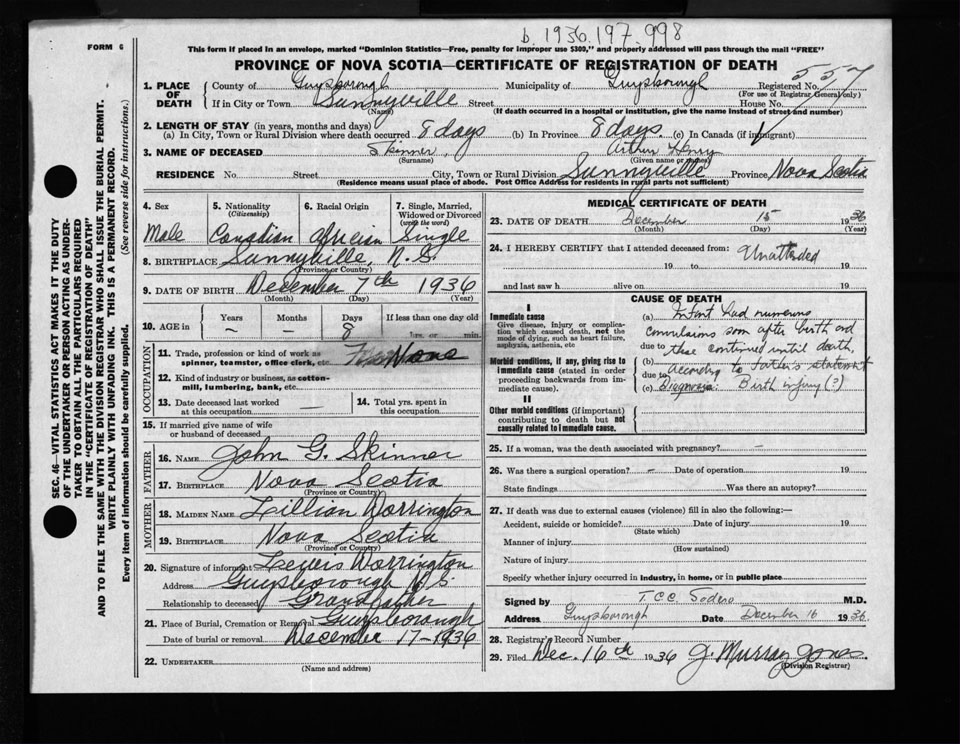 b. 1936.197.998
FORM 6
This form if placed in an envelope, marked "Dominion Statistics—Free, penalty for improper use $300," and properly addressed will pass through the mail "FREE"
PROVINCE OF NOVA SCOTIA—CERTIFICATE OF REGISTRATION OF DEATH
SEC. 46—VITAL STATISTICS ACT MAKES IT THE DUTY
OF THE UNDERTAKER OR PERSON ACTING AS UNDER-
TAKER TO OBTAIN ALL THE PARTICULARS REQUIRED
IN THE "CERTIFICATE OF REGISTRATION OF DEATH"
AND TO FILE THE SAME WITH THE DIVISION REGISTRAR WHO SHALL ISSUE THE BURIAL PERMIT.
WRITE PLAINLY WITH UNFADING INK. THIS IS A PERMANENT RECORD.
Every item of information should be carefully supplied. (See reverse side for instructions.)
1. PLACE OF DEATH County of Guysborough Municipality of Guysborough Registered No. 557
(For use of Registrar General only)
If in City or Town Sunnyville Street House No.
(Name) (If death occurred in a hospital or institution, give the name instead of street and number)
2. LENGTH OF STAY (in years, months and days)
(a) In City, Town or Rural Division where death occurred 8 days (b) In Province 8 days. (c) In Canada (if immigrant)
3. NAME OF DECEASED Skinner, Arthur Henry
(Surname) (Given name or names)
RESIDENCE No. Street City, Town or Rural Division Sunnyville Province Nova Scotia
(Residence means usual place of abode. Post Office Address for residents in rural parts not sufficient)
4. Sex 5. Nationality (Citizenship) 6. Racial Origin 7. Single, Married, Widowed or Divorced (write the word)
Male Canadian African Single
8. BIRTHPLACE Sunnyville, N.S.
(Province or Country)
9. DATE OF BIRTH December 7th 1936
(Month) (Day) (Year)
10. AGE in Years Months Days If less than one day old
– – 8 hrs. or min.
OCCUPATION
11. Trade, profession or kind of work as spinner, teamster, office clerk, etc. None
12. Kind of industry or business, as cotton-mill, lumbering, bank, etc.
13. Date deceased last worked at this occupation — 14. Total yrs. spent in this occupation
15. If married give name of wife or husband of deceased
FATHER
16. Name John G. Skinner
17. Birthplace Nova Scotia
(Province or Country)
MOTHER
18. Maiden Name Lillian Worrington
19. Birthplace Nova Scotia
(Province or Country)
20. Signature of informant Lewis Worrington
Address Guysborough N.S.
Relationship to deceased Grandfather
21. Place of Burial, Cremation or Removal Guysborough
Date of burial or removal December 17–1936
22. UNDERTAKER
(Name and address)
MEDICAL CERTIFICATE OF DEATH
23. DATE OF DEATH December 15 1936
(Month) (Day) (Year)
24. I HEREBY CERTIFY that I attended deceased from: Unattended
19 to 19
and last saw h alive on 19
CAUSE OF DEATH
I
Immediate cause
Give disease, injury or complication which caused death, not the mode of dying, such as heart failure, asphyxia, asthenia, etc.
Morbid conditions, if any, giving rise to immediate cause (stated in order proceeding backwards from immediate cause).
II
Other morbid conditions (if important) contributing to death but not causally related to immediate cause.
(a) Infant had numerous
convulsions soon after birth and
due to these continued until death,
(b) According to Father's statement
due to
(c) Diagnosis: Birth injury (?)
25. If a woman, was the death associated with pregnancy? –
26. Was there a surgical operation? – Date of operation 19
State findings Was there an autopsy?
27. If death was due to external causes (violence) fill in also the following:—
Accident, suicide or homicide? Date of injury 19
(State which)
Manner of injury
(How sustained)
Nature of injury
Specify whether injury occurred in industry, in home, or in public place
Signed by T.C.C. Sodero M.D.
Address Guysborough Date December 16 1936.
28. Registrar's Record Number
29. Filed Dec. 16th 1936 J. Murray Jones
(Division Registrar)